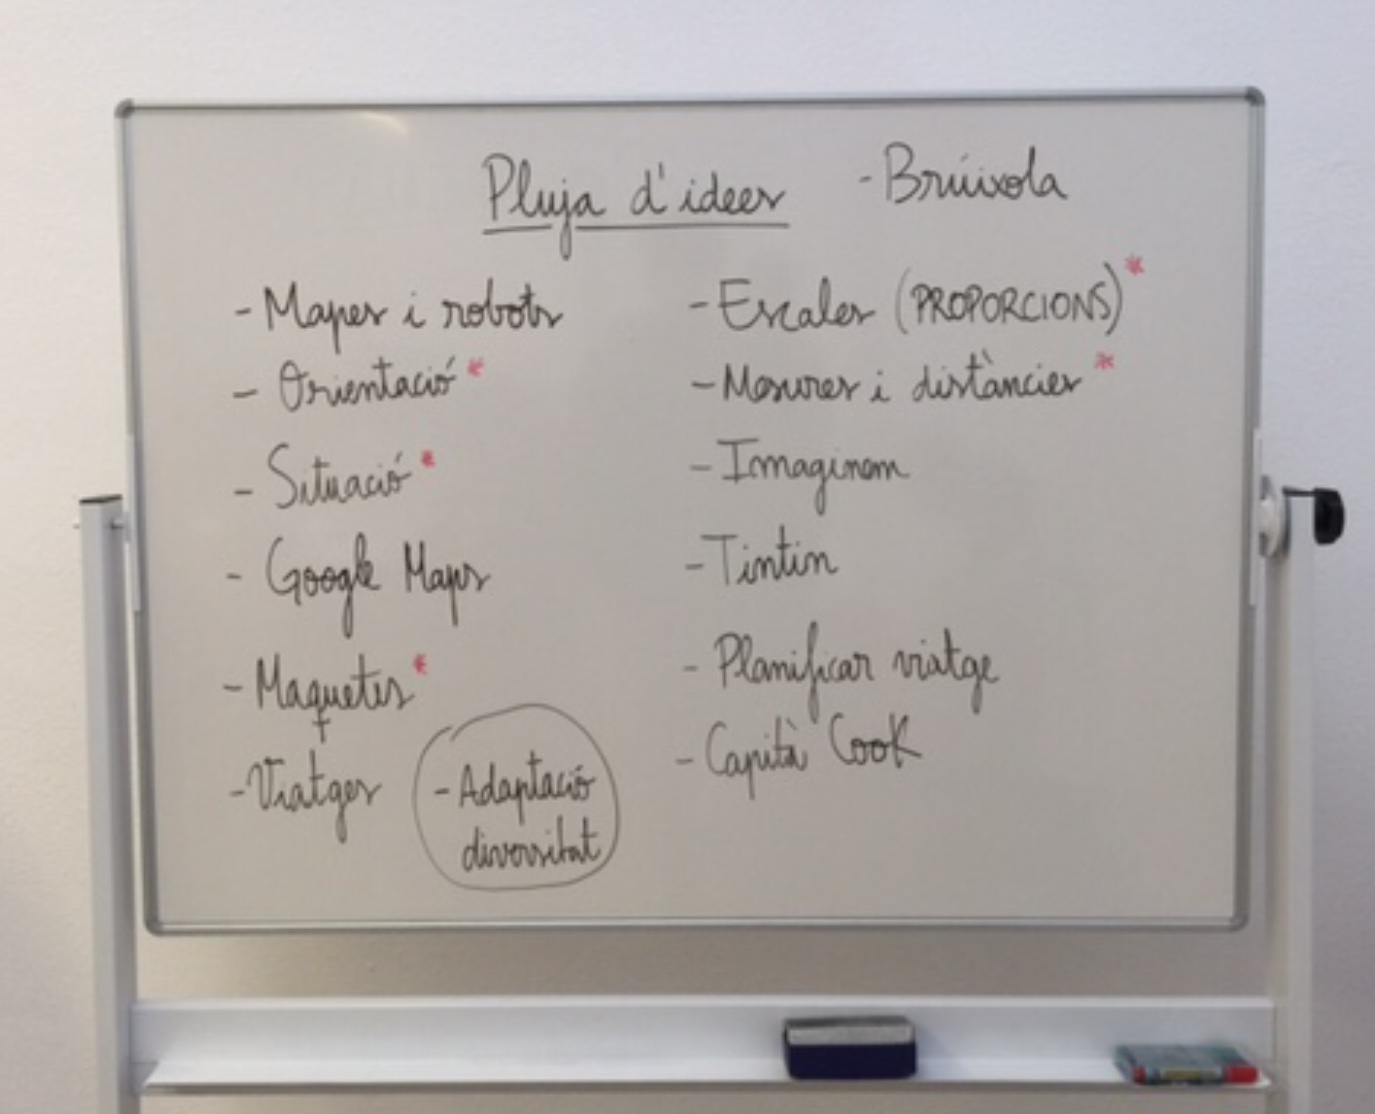 Pluja d'idees
- Brúixola
- Mapes i robots
- Orientació *
- Situació *
- Google Maps
- Maquetes *
- Viatges
- Adaptació
diversitat
- Escales (PROPORCIONS) *
- Mesures i distàncies *
- Imaginem
- Tintin
- Planificar viatge
- Capità Cook